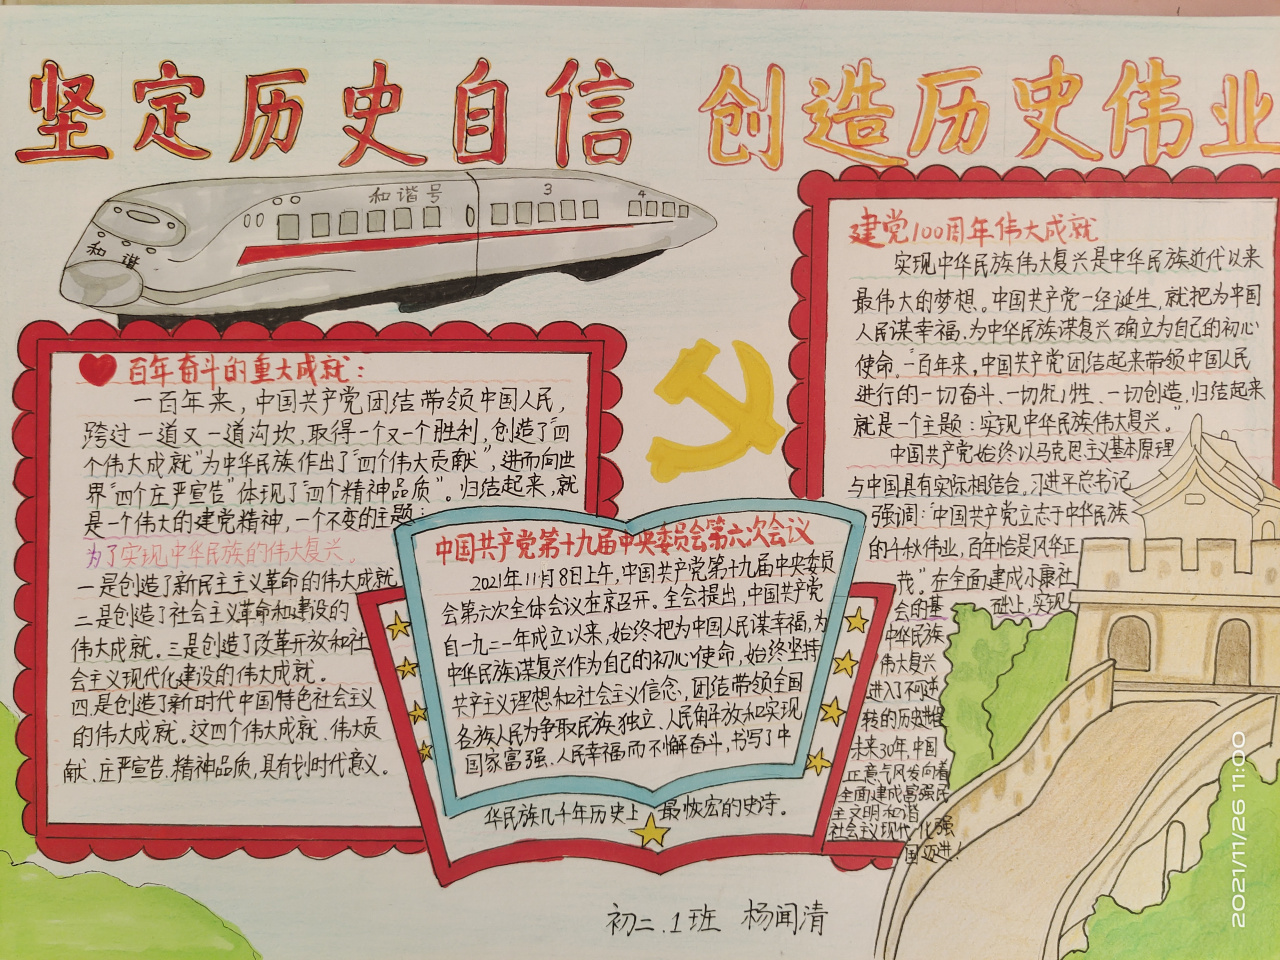 坚定历史自信 创造历史伟业
和谐号
3
4
和谐
百年奋斗的重大成就：
一百年来，中国共产党团结带领中国人民，
跨过一道又一道沟坎，取得一个又一个胜利，创造了“四
个伟大成就”为中华民族作出了“四个伟大贡献”，进而向世
界“四个庄严宣告”体现了“四个精神品质”。归结起来，就
是一个伟大的建党精神，一个不变的主题：
为了实现中华民族的伟大复兴。
一是创造了新民主主义革命的伟大成就
二是创造了社会主义革命和建设的
伟大成就。三是创造了改革开放和社
会主义现代化建设的伟大成就。
四是创造了新时代中国特色社会主义
的伟大成就。这四个伟大成就、伟大贡
献、庄严宣告、精神品质，具有划时代意义。
中国共产党第十九届中央委员会第六次会议
2021年11月8日上午，中国共产党第十九届中央委员
会第六次全体会议在京召开。全会提出，中国共产党
自一九二一年成立以来，始终把为中国人民谋幸福，为
中华民族谋复兴作为自己的初心使命，始终坚持
共产主义理想和社会主义信念，团结带领全国
各族人民为争取民族独立、人民解放和实现
国家富强、人民幸福而不懈奋斗，书写了中
华民族几千年历史上最恢宏的史诗。
建党100周年伟大成就
实现中华民族伟大复兴是中华民族近代以来
最伟大的梦想。中国共产党一经诞生，就把为中国
人民谋幸福，为中华民族谋复兴确立为自己的初心
使命。“一百年来，中国共产党团结起来带领中国人民
进行的一切奋斗、一切牺牲、一切创造，归结起来
就是一个主题：实现中华民族伟大复兴。”
中国共产党始终以马克思主义基本原理
与中国具有实际相结合，习近平总书记
强调：“中国共产党立志于中华民族
的千秋伟业，百年恰是风华正
茂”。在全面建成小康社
会的基础上，实现
中华民族
伟大复兴
进入了不可逆
转的历史进程
未来30年，中国
正意气风发向着
全面建成富强民
主文明和谐
社会主义现代化强
国迈进！
初二.1班 杨闻清
2021/11/26 11:00